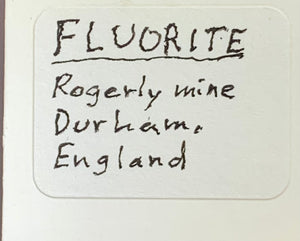 FLUORITE
Rogerly mine
Durham.
England